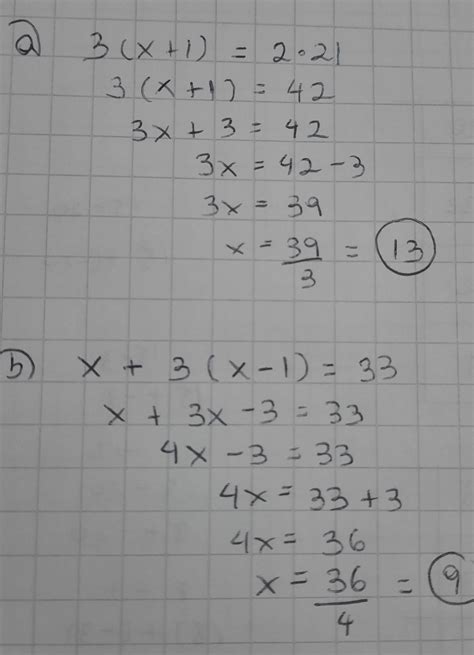 a) 3(x+1) = 2·21
3(x+1) = 42
3x + 3 = 42
3x = 42 - 3
3x = 39
x = 39/3 = 13
b) x + 3(x-1) = 33
x + 3x - 3 = 33
4x - 3 = 33
4x = 33 + 3
4x = 36
x = 36/4 = 9